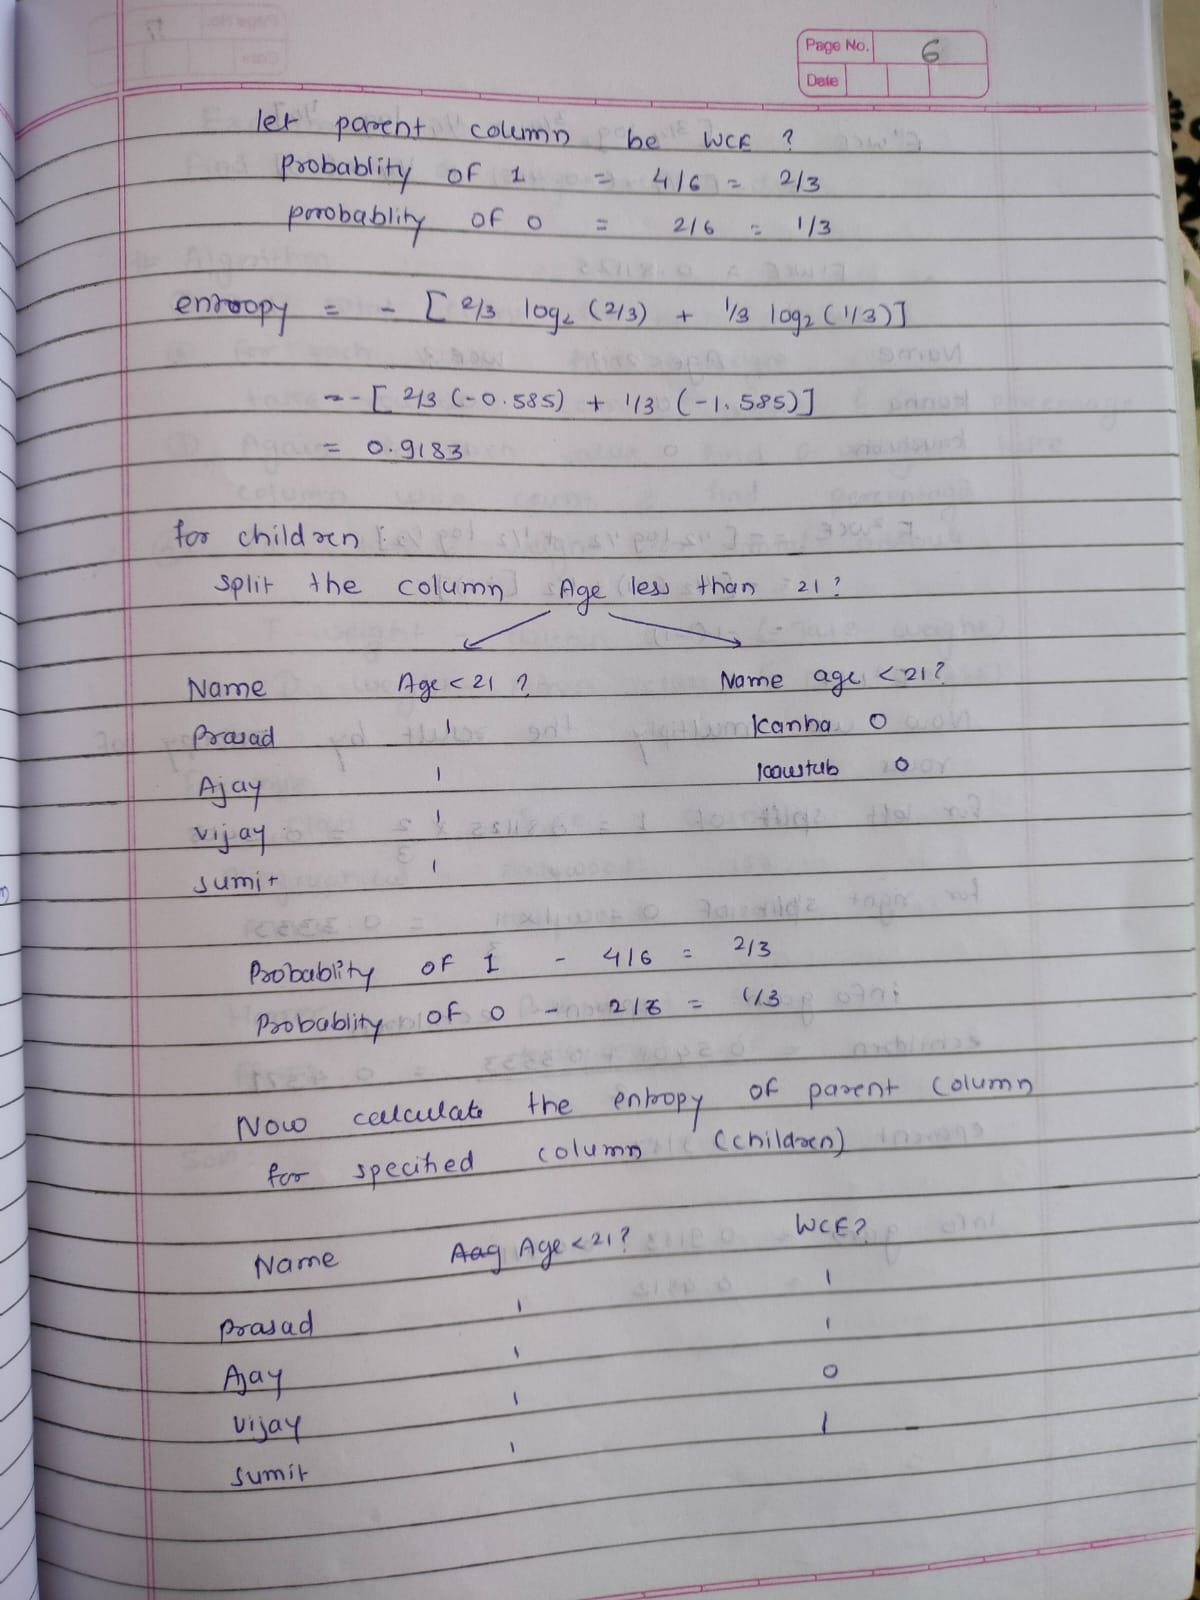 Page No. 6
Date
let parent column be WCE ?
Probablity of 1 = 4/6 = 2/3
porobablity of 0 = 2/6 = 1/3
entropy = - [ 2/3 log2 (2/3) + 1/3 log2 (1/3)]
= - [ 2/3 (-0.585) + 1/3 (-1.585)]
= 0.9183
for children
split the column Age less than 21 ?
Name Age < 21 ? Name age < 21 ?
Prasad 1 Kanha 0
Ajay 1 kowstub 0
vijay 1
sumit 1
Probablity of 1 - 4/6 = 2/3
Probablity of 0 - 2/6 = 1/3
Now calculate the entropy of parent column
for specified column (children)
Name Aag Age < 21 ? WCE ?
prasad 1 1
Ajay 1 1
vijay 1 0
sumit 1 1